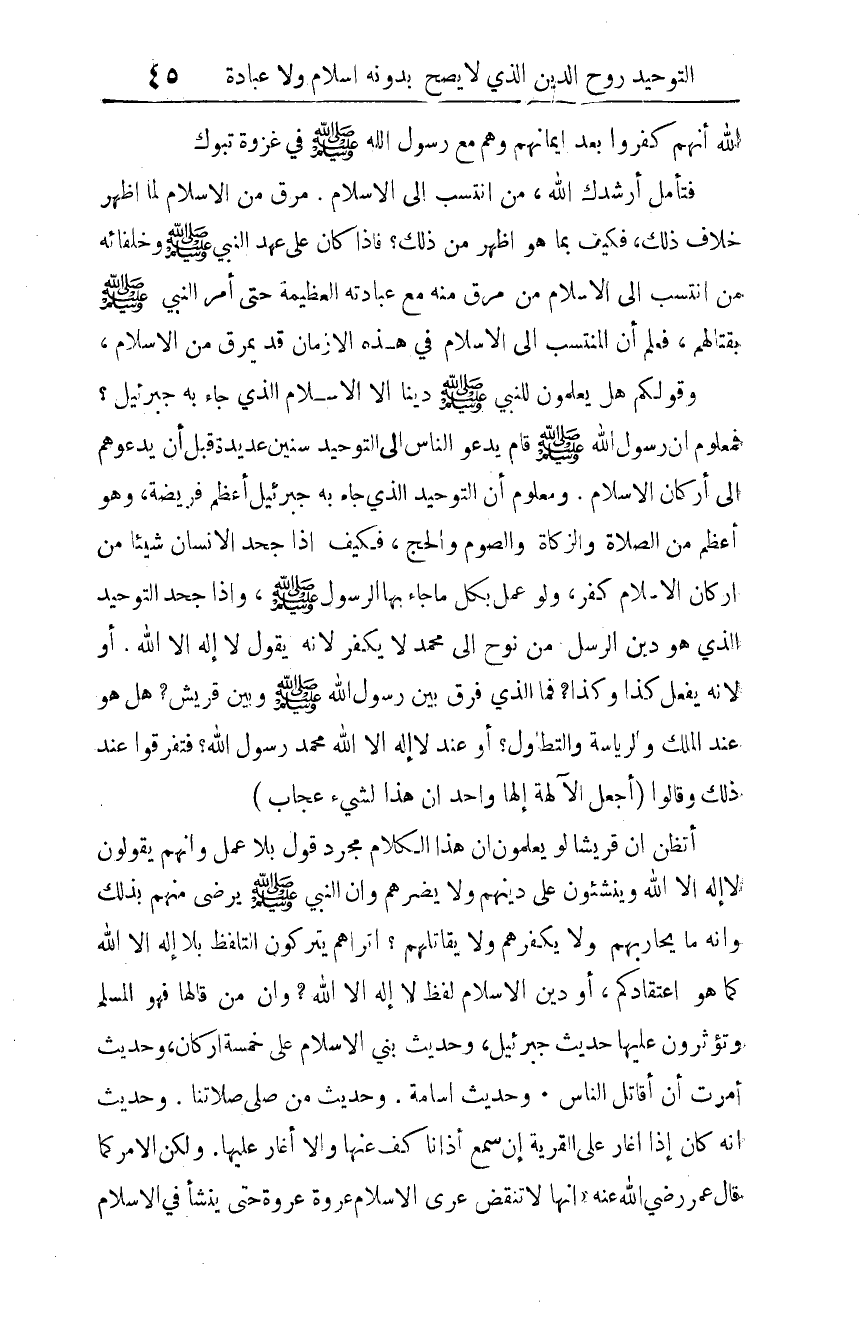 التوحيد روح الدين الذي لا يصح بدونه اسلام ولا عبادة ٤٥
الله أنهم كفروا بعد ايمانهم وهم مع رسول الله ﷺ في غزوة تبوك
فتأمل أرشدك الله ، من انتسب الى الاسلام . مرق من الاسلام لما اظهر
خلاف ذلك، فكيف بما هو اظهر من ذلك؟ فاذا كان على عهد النبي ﷺ وخلفائه
من انتسب الى الاسلام من مرق منه مع عبادته العظيمة حتى أمر النبي ﷺ
بقتالهم ، فعلم أن المنتسب الى الاسلام في هـذه الازمان قد يمرق من الاسلام ،
وقولكم هل يعلمون للنبي ﷺ دينا الا الاسـلام الذي جاء به جبرئيل ؟
فمعلوم ان رسول الله ﷺ قام يدعو الناس الى التوحيد سنين عديدة قبل أن يدعوهم
الى أركان الاسلام . ومعلوم أن التوحيد الذي جاء به جبرئيل أعظم فريضة، وهو
أعظم من الصلاة والزكاة والصوم والحج ، فـكيف اذا جحد الانسان شيئا من
اركان الاسلام كفر، ولو عمل بكل ماجاء بها الرسول ﷺ ، واذا جحد التوحيد
الذي هو دين الرسل من نوح الى محمد لا يكفر لانه يقول لا إله الا الله . أو
لانه يفعل كذا وكذا؟ فما الذي فرق بين رسول الله ﷺ وبين قريش؟ هل هو
عند الملك والرياسة والتطاول؟ أو عند لا إله الا الله محمد رسول الله؟ فتفرقوا عند
ذلك وقالوا (أجعل الآلهة إلها واحد ان هذا لشيء عجاب )
أتظن ان قريشا لو يعلمون ان هذا الـكلام مجرد قول بلا عمل وانهم يقولون
لا إله الا الله وينشئون على دينهم ولا يضرهم وان النبي ﷺ يرضى منهم بذلك
وانه ما يحاربهم ولا يكفرهم ولا يقاتلهم ؟ اتراهم يتركون التلفظ بلا إله الا الله
كما هو اعتقادكم ، أو دين الاسلام لفظ لا إله الا الله ؟ وان من قالها فهو المسلم
وتؤثرون عليها حديث جبرئيل، وحديث بني الاسلام على خمسة اركان، وحديث
أمرت أن أقاتل الناس . وحديث اسامة . وحديث من صلى صلاتنا . وحديث
انه كان إذا اغار على القرية إن سمع أذانا كف عنها والا أغار عليها. ولكن الامر كما
قال عمر رضي الله عنه «انها لا تنقض عرى الاسلام عروة عروة حتى ينشأ في الاسلام